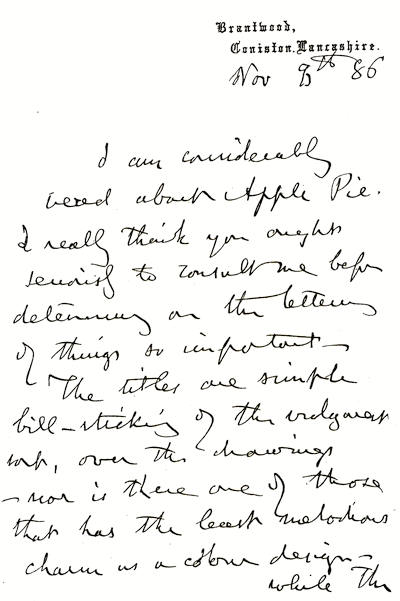 Brantwood,
Coniston, Lancashire.
Nov 9th 86
I am considerably
vexed about Apple Pie.
I really think you ought
seriously to consult me before
determining on the lettering
of things so important—
The titles are simple
bill-sticking of the vulgarest
sort, over the drawings
— nor is there one of those
that has the least melodious
charm as a colour design—
while the